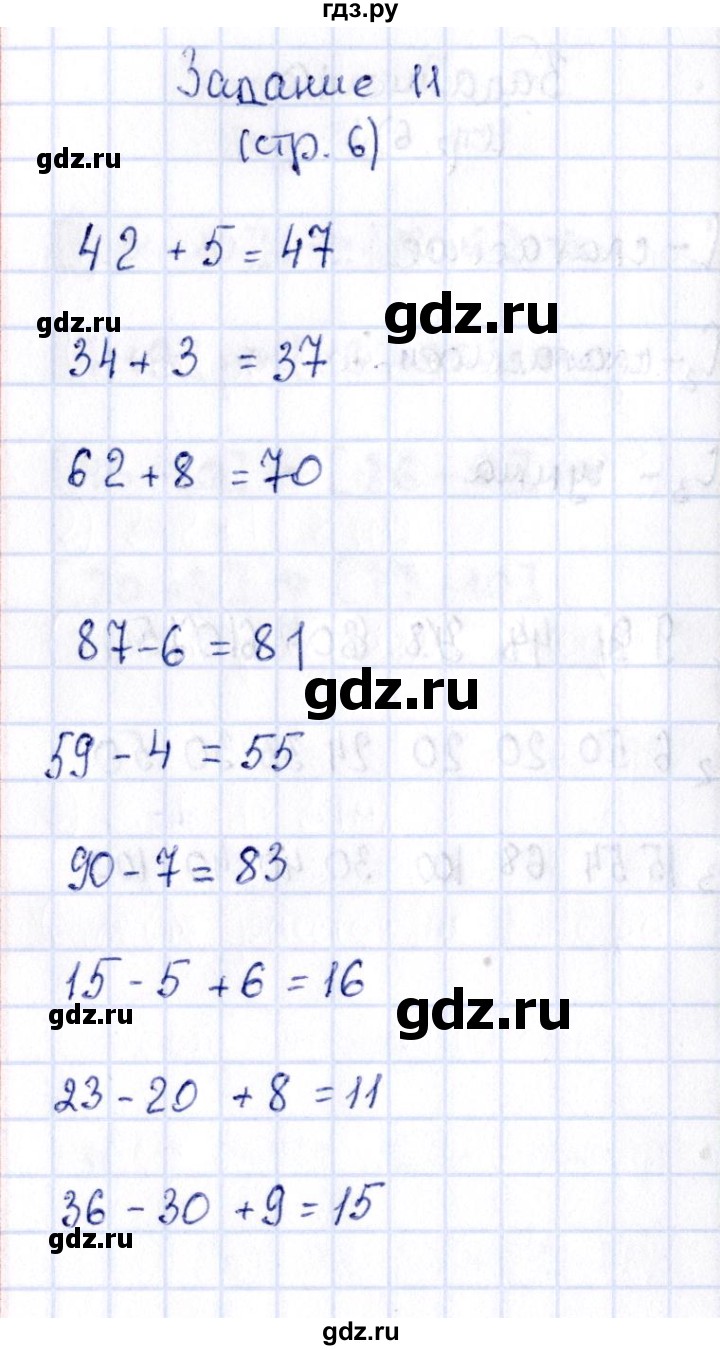 гдз.ру
Задание 11
(стр. 6)
gdz.ru
42 + 5 = 47
gdz.ru
gdz.ru
34 + 3 = 37
62 + 8 = 70
87 - 6 = 81
gdz.ru
59 - 4 = 55
90 - 7 = 83
15 - 5 + 6 = 16
gdz.ru
gdz.ru
23 - 20 + 8 = 11
36 - 30 + 9 = 15
gdz.ru
gdz.ru